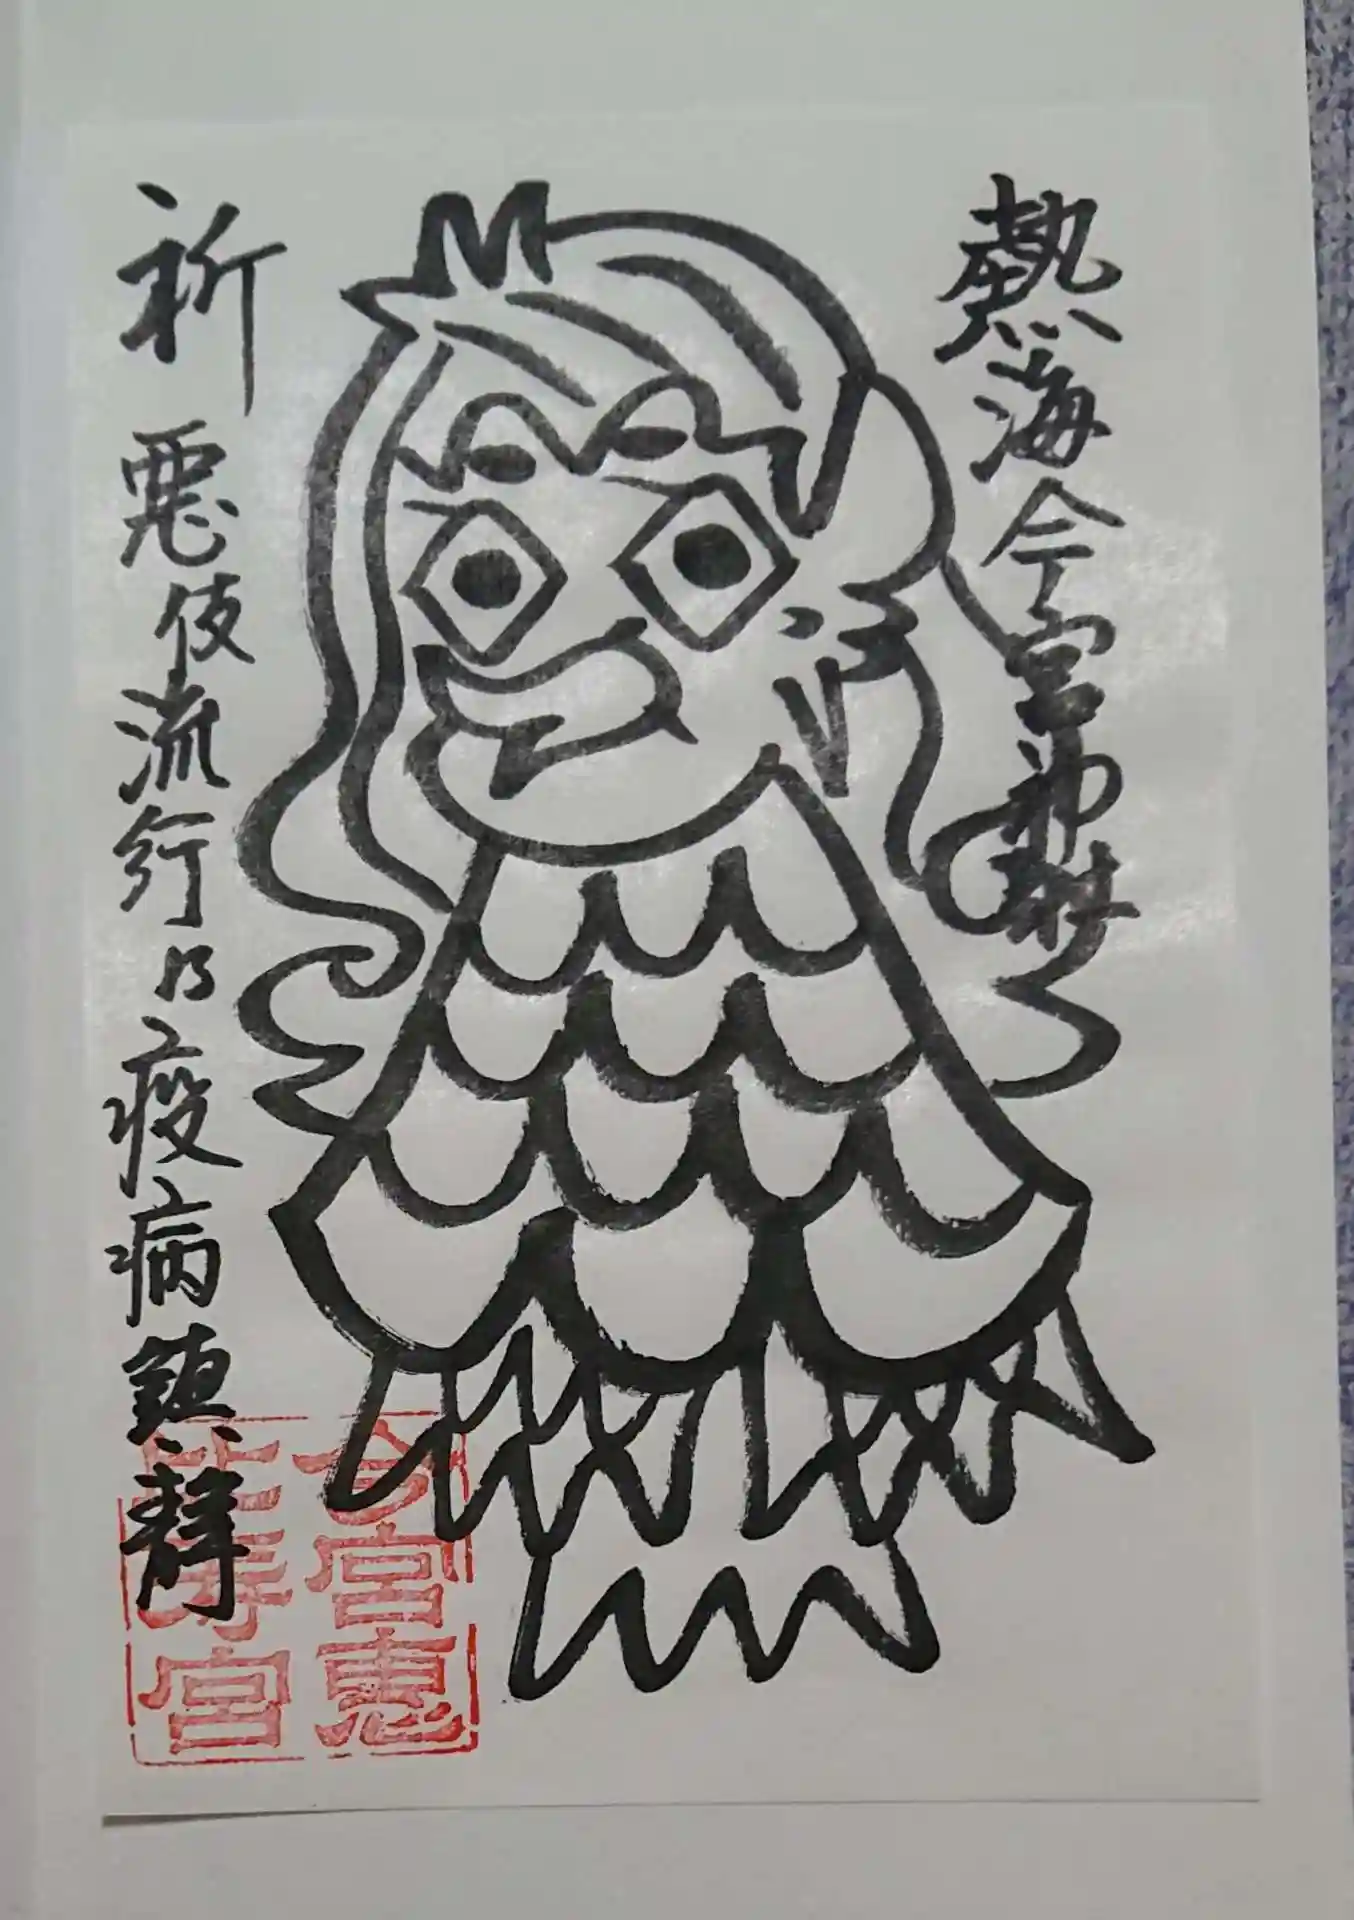 熱海今宮神社
祈 悪伎流行乃疫病鎮静
今宮恵
比寿宮